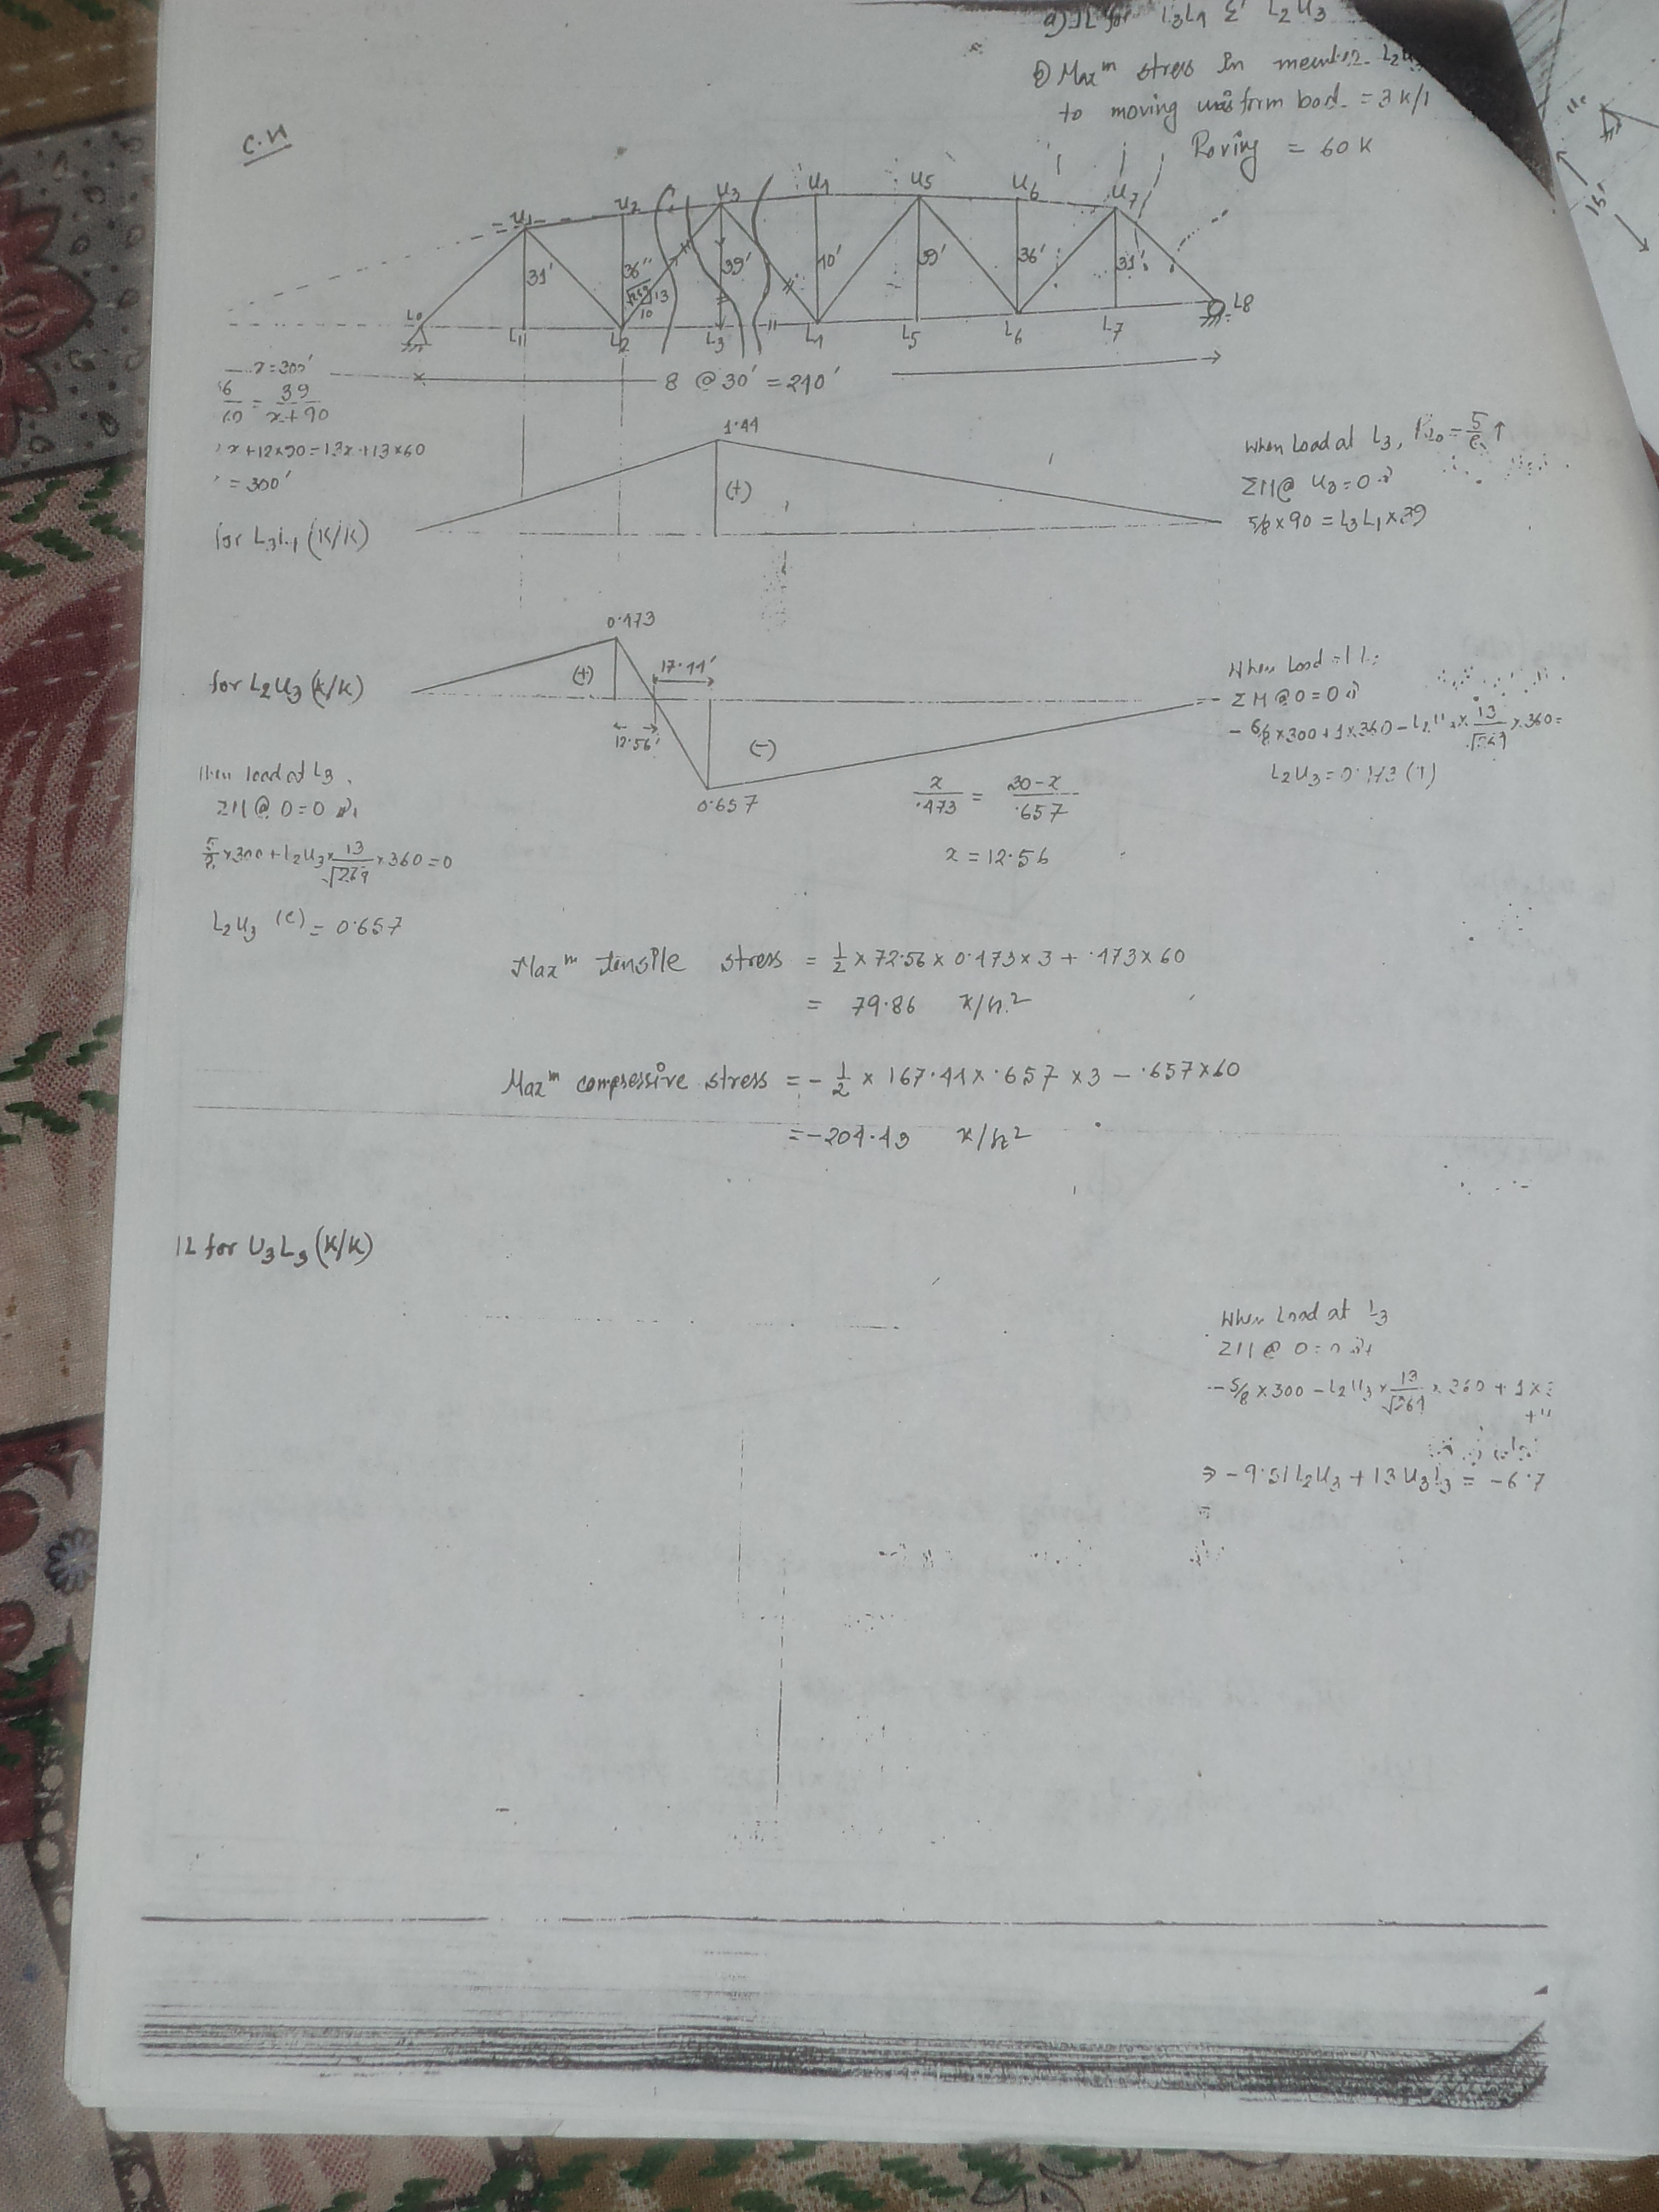 a) IL for L3L4 & L2U3
b) Maxm stress in member L2U3
to moving uniform load = 3 K/
Roving = 60 K
C.W
U1 U2 U3 U4 U5 U6 U7
31' 36' 39' 40' 39' 36' 31'
√269 13
10
L0 L1 L2 L3 L4 L5 L6 L7 L8
8 @ 30' = 240'
x = 300'
39
x+90
x+12×90 = 13x+13×60
= 300'
1.44
(+)
for L3L4 (K/K)
When Load at L3, RL0 = 5/8 ↑
ΣM@ U3 = 0
5/8 × 90 = L3L4 × 39
0.473
(+)
17.44'
for L2U3 (K/K)
12.56'
(-)
0.657
When Load
ΣM @ 0 = 0
- 6/8 × 300 + 1 × 360 - L2U3 × 13/√269 × 360 =
L2U3 = 0.473 (T)
When load at L3
ΣM @ 0 = 0
5/8 × 300 + L2U3 × 13/√269 × 360 = 0
L2U3 (C) = 0.657
x/.473 = 30-x/.657
x = 12.56
Maxm tensile stress = 1/2 × 72.56 × 0.473 × 3 + .473 × 60
= 79.86 K/in2
Maxm compressive stress = - 1/2 × 167.44 × .657 × 3 - .657 × 60
= -204.43 K/in2
IL for U3L3 (K/K)
When Load at L3
ΣM @ 0 = 0
- 5/8 × 300 - L2U3 × 13/√269 × 360 + 1 ×
⇒ - 9.51 L2U3 + 13 U3L3 = -6.7
=